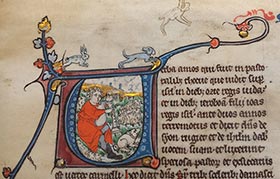 Verba amos qui fuit in pasto
ralibus thecue que uidit super
isrl in dieb; ozie regis iuda et
in dieb; ieroboā filii ioas
regis isrl ante duos annos
terremotus et dixit dns de
syon rugiet et de ihrlm dabit
uocem suam et luxerunt
speciosa pastor et exsiccatus
est uertex carmeli hec dicit dns super trib; sceleribus damasci